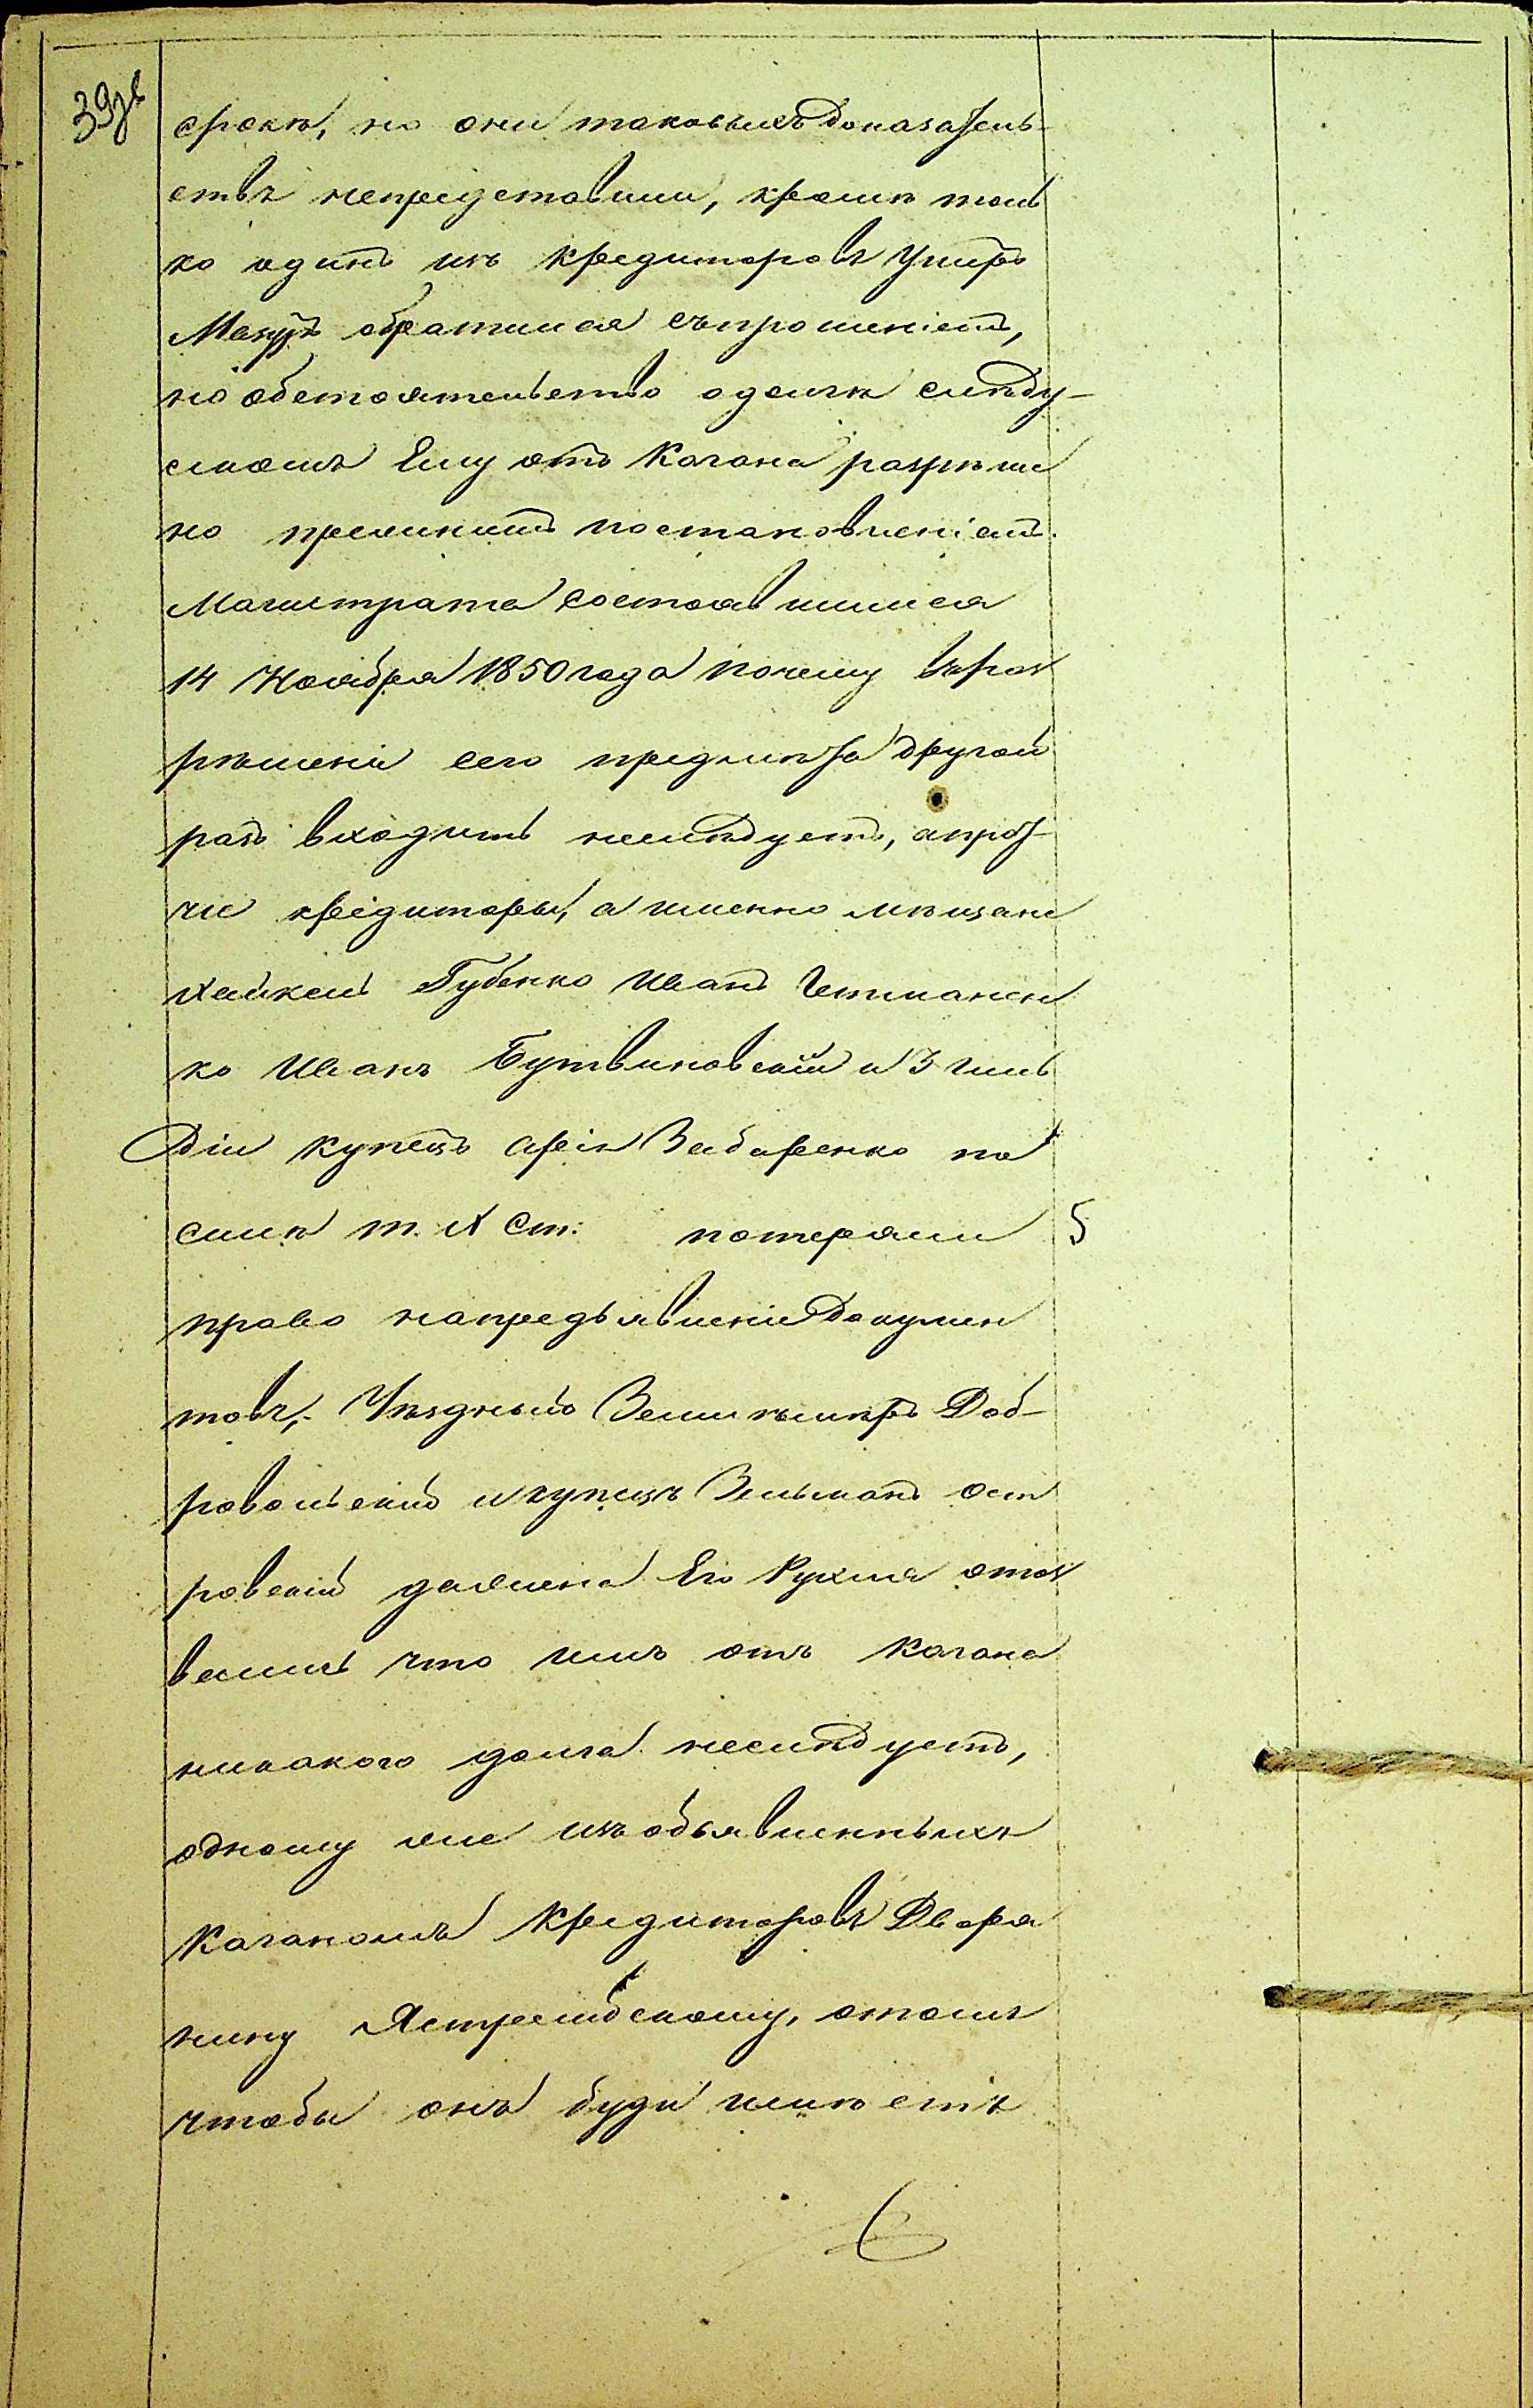 39зв
срокъ, но они таковыхъ доказатель-
ствъ непредставили, кромѣ толь
ко одинъ изъ кредиторовъ
Мазуръ обратился съпрошеніемъ,
но обстоятельство о долгѣ слѣду-
емомъ Ему отъ Кагана разрѣше
но прежнимъ постановленіемъ
Магистрата состоявшимся
14 Ноября 1850 года почему въраз
рѣшеніи сего предмѣта другой
разъ входить неслѣдуетъ, апро-
чіе кредиторы, а именно мѣщане
Хайкель Губенко Иванъ Гетманен
ко Иванъ Бутвиновскій и 3 гиль
діи купецъ Захаренко по
силѣ т. X Ст: потеряли 5
право напредъявленіе докумен
товъ, Уѣздный Землемѣръ Доб-
ровольскій и купецъ Зельманъ Ост
ровскій дажена Его Рухля отоз
вались что имъ отъ Кагана
никакого долга неслѣдуетъ,
одному же изъобъявленныхъ
Каганомъ Кредиторовъ Дворя
нину Ястрембскому, отомъ
чтобы онъ буди имѣетъ